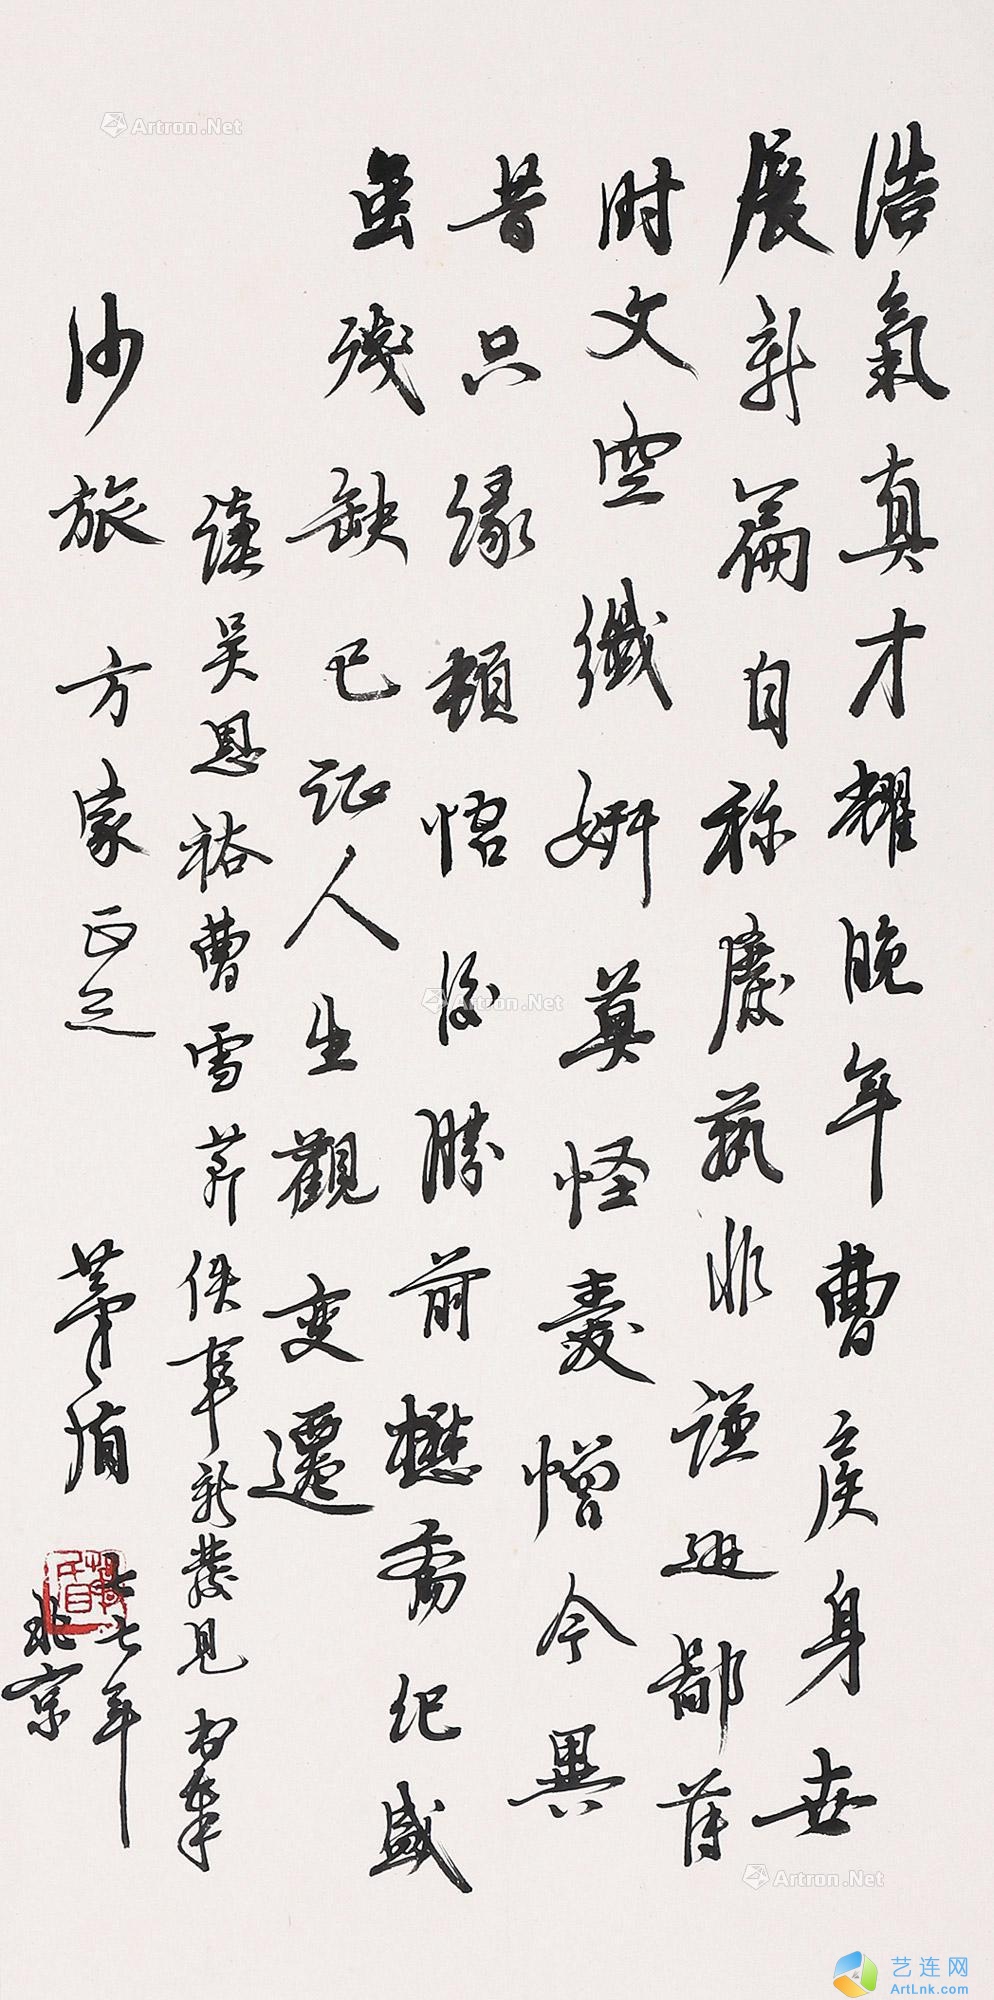 浩氣真才耀晚年曹侯身世
展新篇自称廢藝非謙遜鄙薄
时文空纖妍莫怪愛憎今異
昔只缘頓悟後勝前懋斋纪盛
虽残缺已证人生觀变遷
读吴恩裕曹雪芹佚事新發見书奉
沙旅方家正之
茅盾
七七年
北京
Artron.Net
Artron.Net
Artron.Net
艺连网
ArtLnk.com